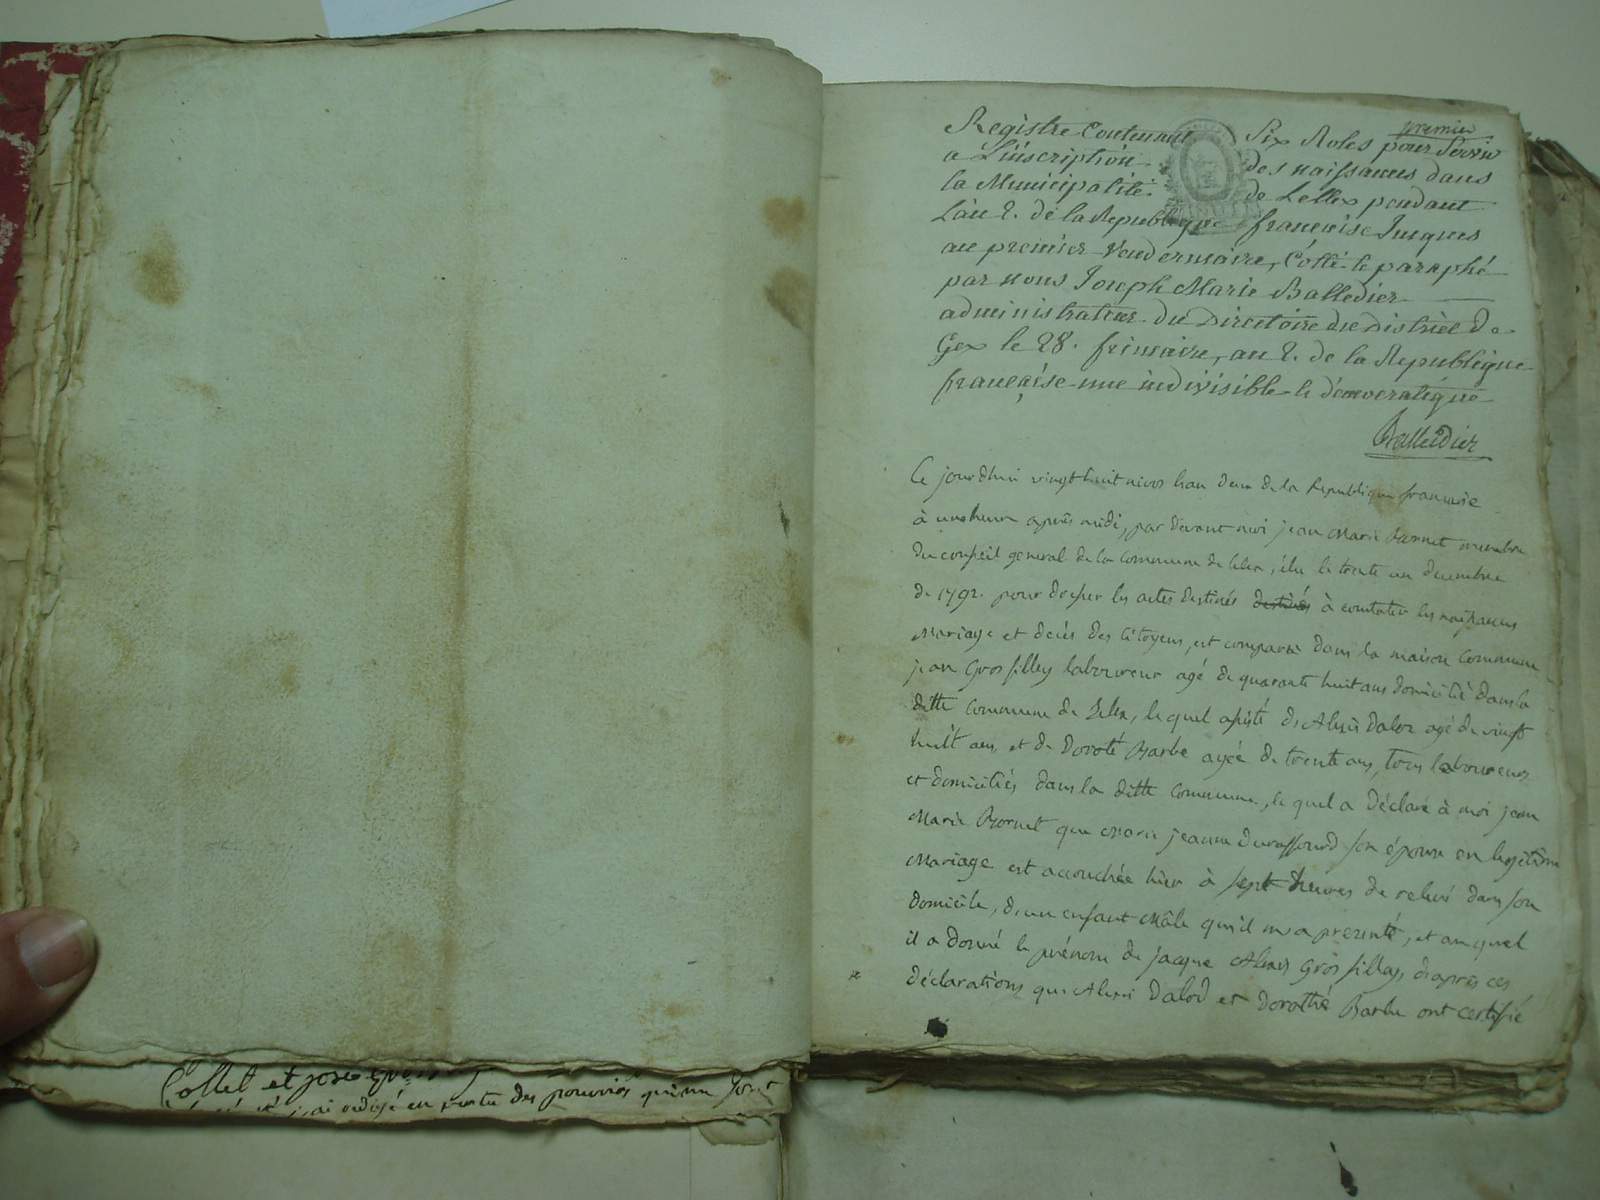 premier
Registre Contenant Six Roles pour Servir
a L'inscription des naissances dans
la Municipalité de Lellex pendant
L'an 2. de la Republique françaisse Jusques
au premier Vendermiaire, Cotté & paraphé
par nous Joseph Marie Balledier
administrateur du Directoire du District de
Gex le 28. frimaire, an 2. de la Republique
française une indivisible & démocratique
Balleidier
Ce jourdhui vingt huit nivos lan deux de la Republique francaise
à une heure après midi, par devant moi jean Marie membre
du conseil general de la Commune de lelex, élu le trente un decembre
de 1792. pour dresser les actes destinés destinés à constater les naissances
Mariage et decés des Citoyens, est comparu dans la maison Commune
jean Gros filley laboureur agé de quarante huit ans domicilié dans la
ditte Commune de Lelex, lequel assisté d'Alexis Dalod agé de vingt
huit ans, et de Doroté Barbe agée de trente ans, tous laboureurs
et domiciliés dans la ditte Commune, lequel a déclaré à moi jean
Marie que Marie jeanne Durassourd son épouse en legitime
Mariage est accouchée hier à sept heures de dans son
domicile, d'un enfant Mâle qu'il m'a presenté, et auquel
il a donné le prénom de jacque Alexis Gros filley, d'après ces
déclarations que Alexi Dalod et dorothé Barbe ont certifié
Collet et
j'ai redigé en vertu des pouvoirs qui me sont